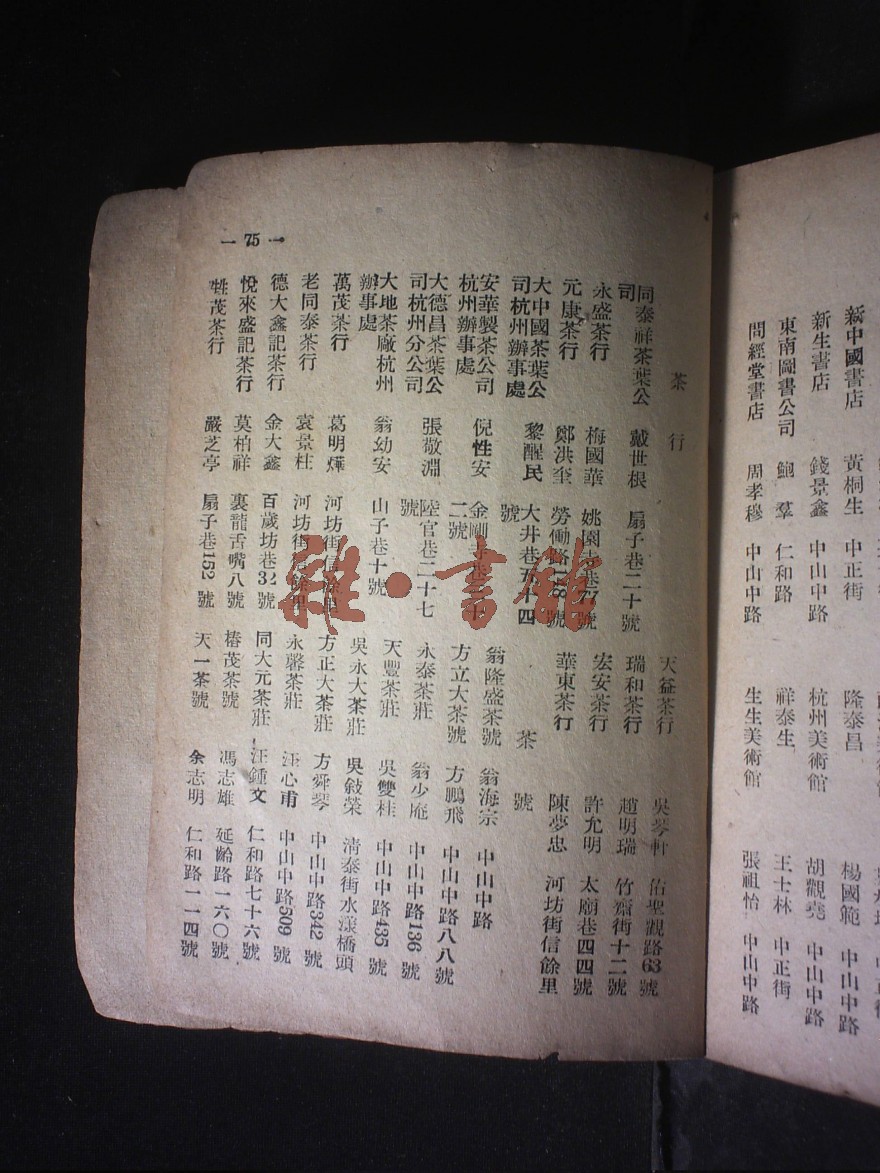 新中國書店 黃桐生 中正街
新生書店 錢景鑫 中山中路
東南圖書公司 鮑羣 仁和路
問經堂書店 周孝穆 中山中路
隆泰昌 楊國範 中山中路
杭州美術館 胡觀堯 中山中路
祥泰生 王士林 中正街
生生美術館 張祖怡 中山中路
— 75 —
茶行
同泰祥茶葉公司 戴世根 扇子巷二十號
永盛茶行 梅國華 姚園寺巷77號
元康茶行 鄭洪奎 勞働路 號
大中國茶葉公司杭州辦事處 黎醒民 大井巷五十四號
安華製茶公司杭州辦事處 倪性安 金剛寺巷 二號
大德昌茶葉公司杭州分公司 張敬淵 陸官巷二十七號
大地茶廠杭州辦事處 翁幼安 山子巷十號
萬茂茶行 葛明燁 河坊街信餘里
老同泰茶行 袁景柱 河坊街信餘里
德大鑫記茶行 金大鑫 百歲坊巷32號
悅來盛記茶行 莫柏祥 裏龍舌嘴八號
甡茂茶行 嚴芝亭 扇子巷152號
天益茶行 吳琴軒 佑聖觀路63號
瑞和茶行 趙明瑞 竹齋街十二號
宏安茶行 許允明 太廟巷四四號
華東茶行 陳夢忠 河坊街信餘里
茶號
翁隆盛茶號 翁海宗 中山中路
方立大茶號 方鵬飛 中山中路八八號
永泰茶莊 翁少庵 中山中路136號
天豐茶莊 吳雙桂 中山中路435號
吳永大茶莊 吳敍榮 清泰街水漾橋頭
方正大茶莊 方舜琴 中山中路342號
永馨茶莊 汪心甫 中山中路509號
同大元茶莊 汪鍾文 仁和路七十六號
椿茂茶號 馮志雄 延齡路一六〇號
天一茶號 余志明 仁和路一一四號
雜·書館